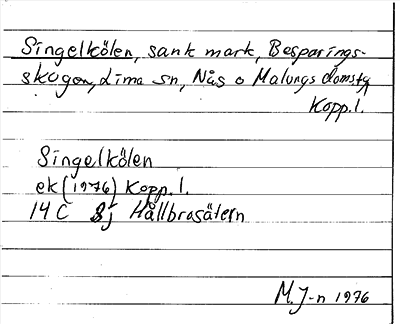 Singelkölen, sank mark, Besparings-
skogen, Lima sn, Nås o Malungs domstg
Kopp.l.
Singelkölen
ek (1976) Kopp.l.
14 C j Hållbrosätern
M.J-n 1976